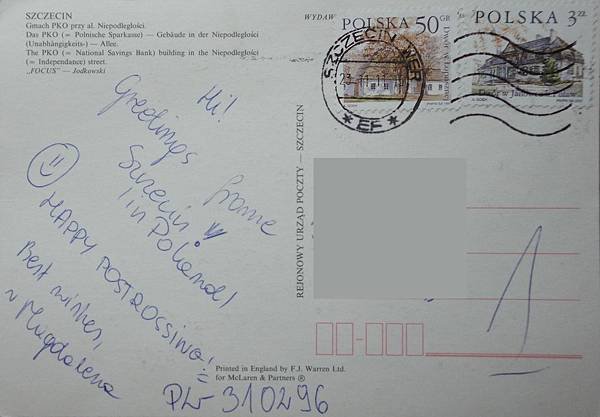 SZCZECIN
Gmach PKO przy al. Niepodległości.
Das PKO (= Polnische Sparkasse) — Gebäude in der Niepodległości
(Unabhängigkeits-) — Allee.
The PKO (= National Savings Bank) building in the Niepodległości
(= Independance) street.
„FOCUS" — Jodkowski
WYDAW
POLSKA 50 GR
POLSKA 3 ZŁ
SZCZECIN
23
* EF *
Hi!
Greetings
frome
Szczecin
(in Poland)
HAPPY POSTROSSING!
Best wishes,
~ Magdalena
PL- 310296
REJONOWY URZĄD POCZTY — SZCZECIN
1
Printed in England by F.J. Warren Ltd.
for McLaren & Partners ®